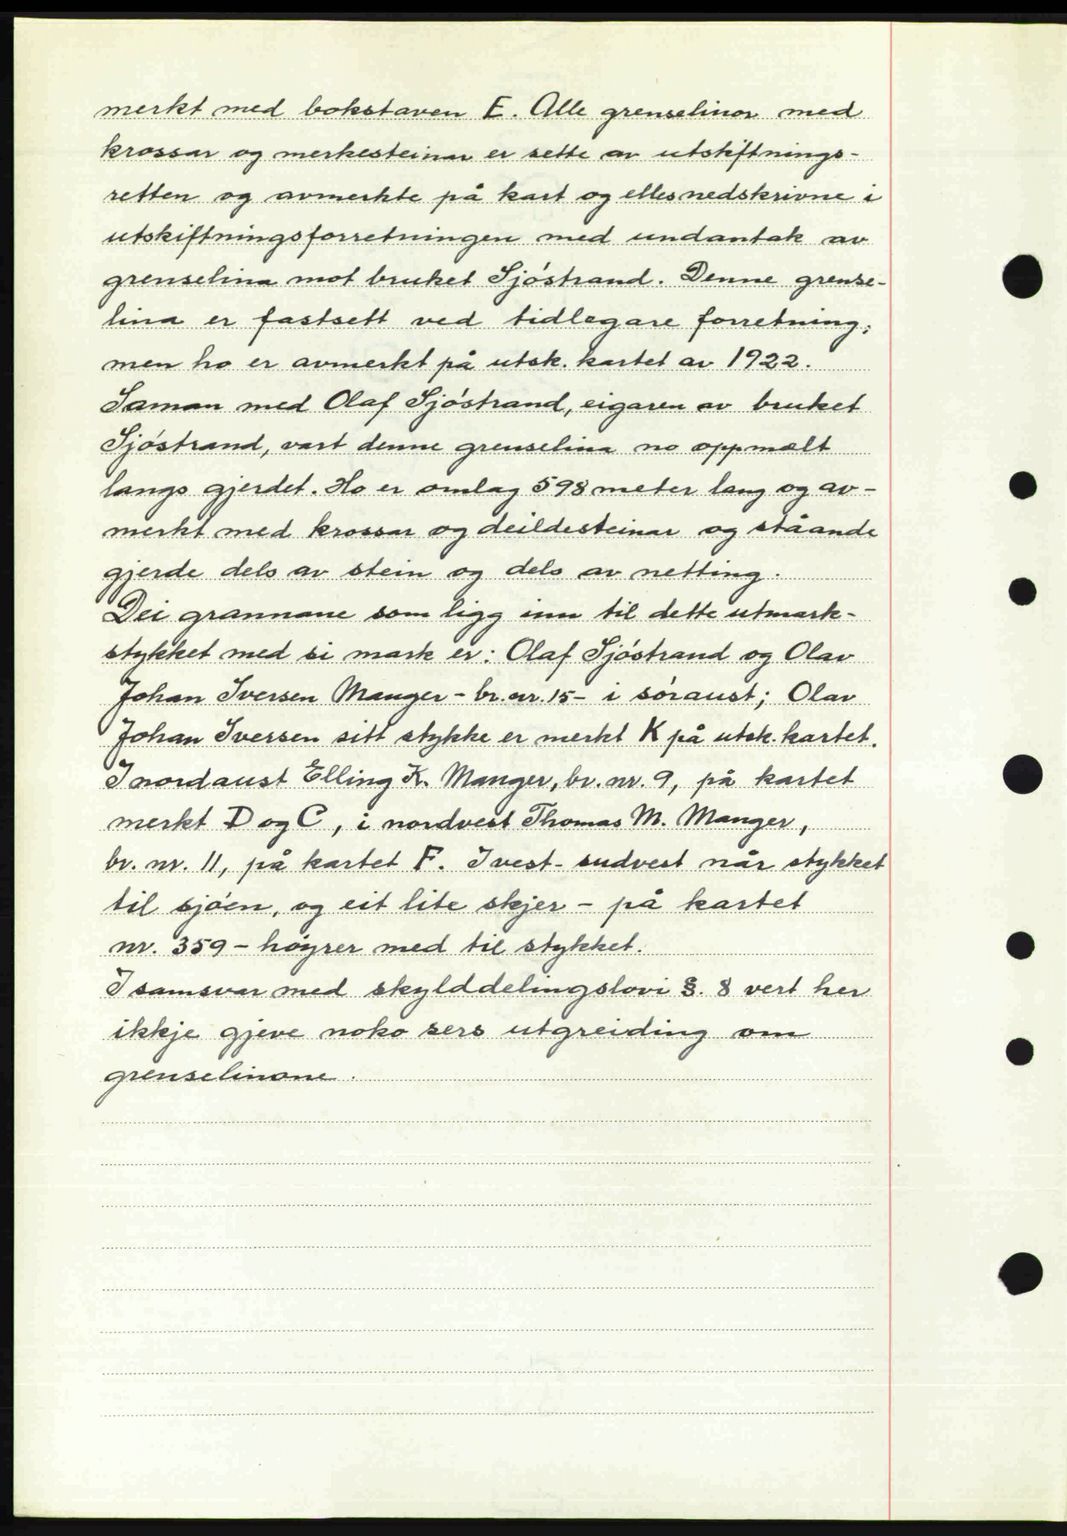 merkt med bokstaven E. Alle grenselinor med
krossar og merkesteinar er sette av utskiftnings-
retten og avmerkte på kart og elles nedskrivne i
utskiftningsforretningen med undantak av
grenselina mot bruket Sjóstrand. Denne grense-
lina er fastsett ved tidlegare forretning;
men ho er avmerkt på utsk. kartet av 1922.
Saman med Olaf Sjóstrand, eigaren av bruket
Sjóstrand, vart denne grenselina no oppmælt
langs gjerdet. Ho er omlag 598 meter lang og av-
merkt med krossar og deildesteinar og ståande
gjerde dels av stein og dels av netting.
Dei grannane som ligg inn til dette utmark-
stykket med si mark er: Olaf Sjóstrand og Olav
Johan Iversen Manger - br. nr. 15 - i sóraust; Olav
Johan Iversen sitt stykke er merkt K på utsk. kartet.
I nordaust Elling K. Manger, br. nr. 9, på kartet
merkt D og C, i nordvest Thomas M. Manger,
br. nr. 11, på kartet F. I vest-sudvest når stykket
til sjóen, og eit lite skjer - på kartet
nr. 359 - hóyrer med til stykket.
I samsvar med skylddelingslovi §. 8 vert her
ikkje gjeve noko sers utgreiding om
grenselinone.